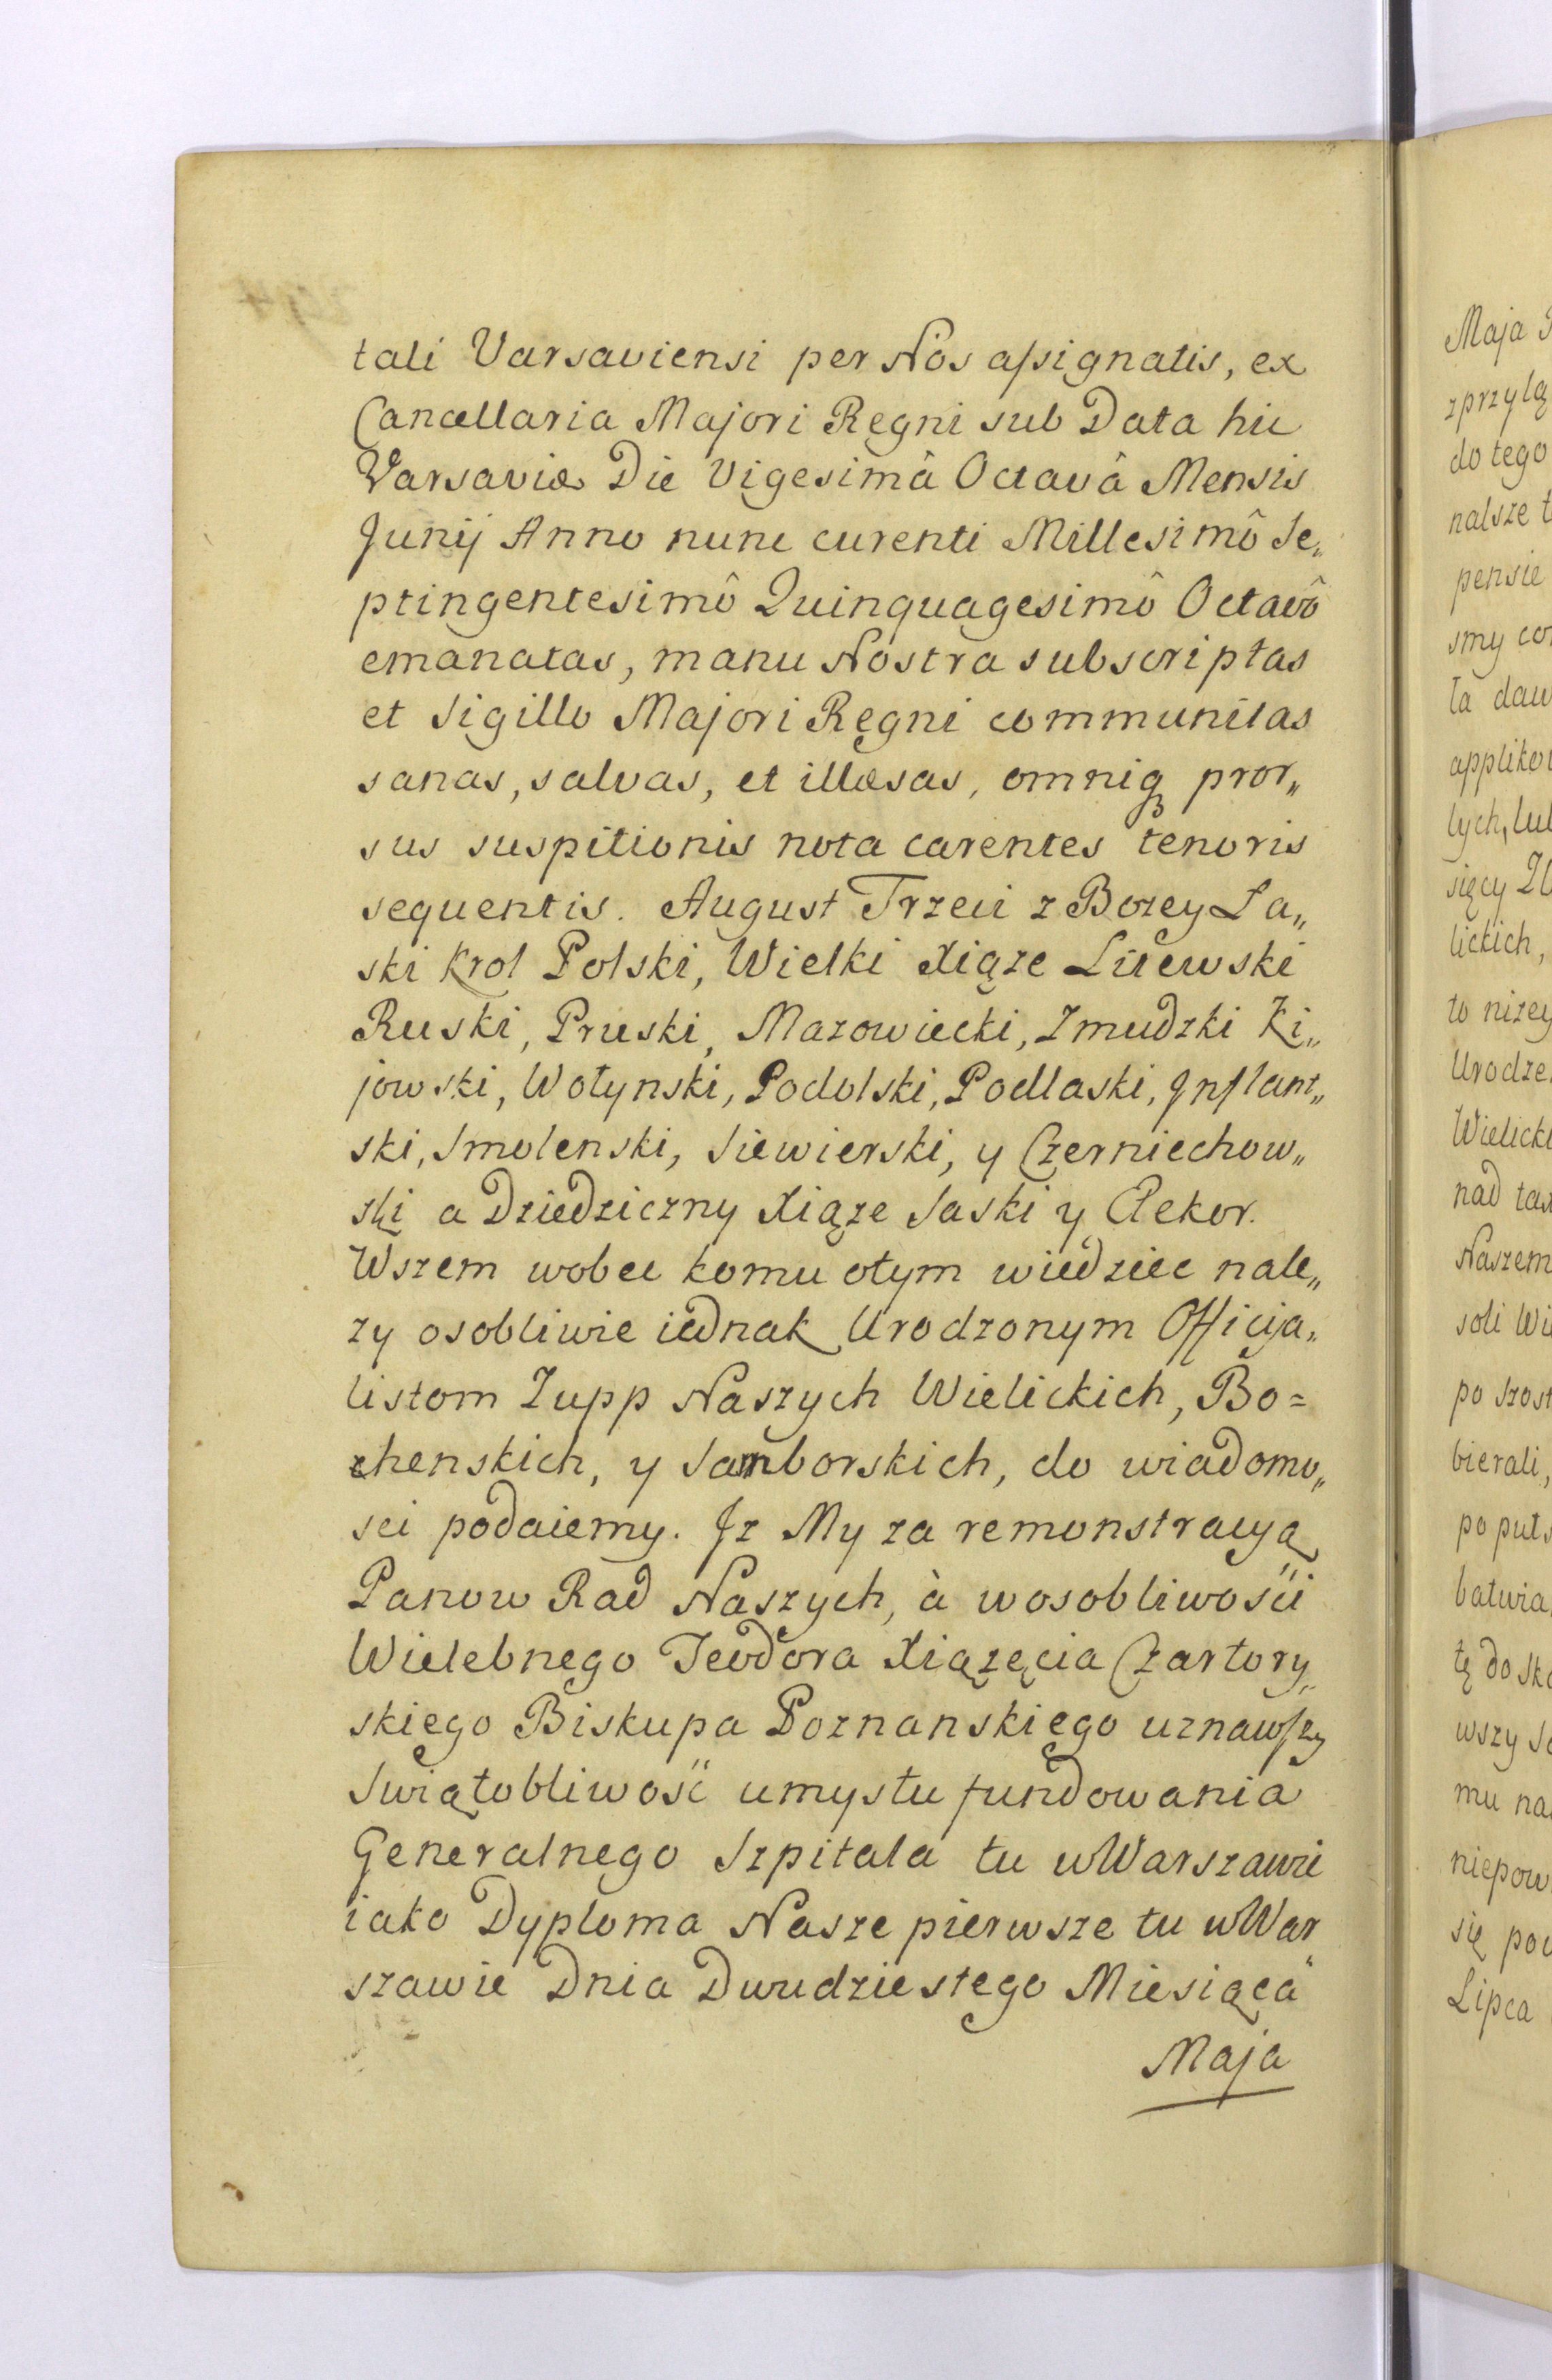 tali Varsaviensi per Nos assignatis, ex
Cancellaria Majori Regni sub Data hic
Varsaviæ Die Vigesimâ Octavâ Mensis
Junij Anno nunc curenti Millesimô Se„
ptingentesimô Quinquagesimô Octavô
emanatas, manu Nostra subscriptas
et Sigillo Majori Regni communitas
sanas, salvas, et illæsas, omniq3 pror„
sus suspitionis nota carentes tenoris
sequentis. August Trzeci z Bozey La„
ski Krol Polski, Wielki Xiąze Litewski
Ruski, Pruski, Mazowiecki, Zmudzki Ki„
jowski, Wołynski, Podolski, Podlaski, Jnflant„
ski, Smolenski, Siewierski, y Czerniechow„
ski a Dziedziczny Xiąze Saski y Elektor.
Wszem wobec komu otym wiedziec nale„
zy osobliwie iednak Urodzonym Officija„
listom Zupp Naszych Wielickich, Bo=
chenskich, y Samborskich, do wiadomo„
sci podaiemy. Jz My za remonstracyą
Panow Rad Naszych, à wosobliwości
Wielebnego Teodora Xiązęcia Czartory„
skiego Biskupa Poznanskiego uznawszy
Swiątobliwość umysłu fundowania
Generalnego Szpitala tu wWarszawie
iako Dyploma Nasze pierwsze tu wWar
szawie Dnia Dwudziestego Miesiąca
Maja
Maja
zprzylą
do tego
nalsze t
pensie
smy co
ła daw
appliko
łych, lu
sięcy Zł
lickich,
to nizey
Urodze
Wielick
nad ta
Naszem
soli Wi
po szos
bierali,
po put
batwia
tę do sk
wszy S
mu na
niepow
się po
Lipca